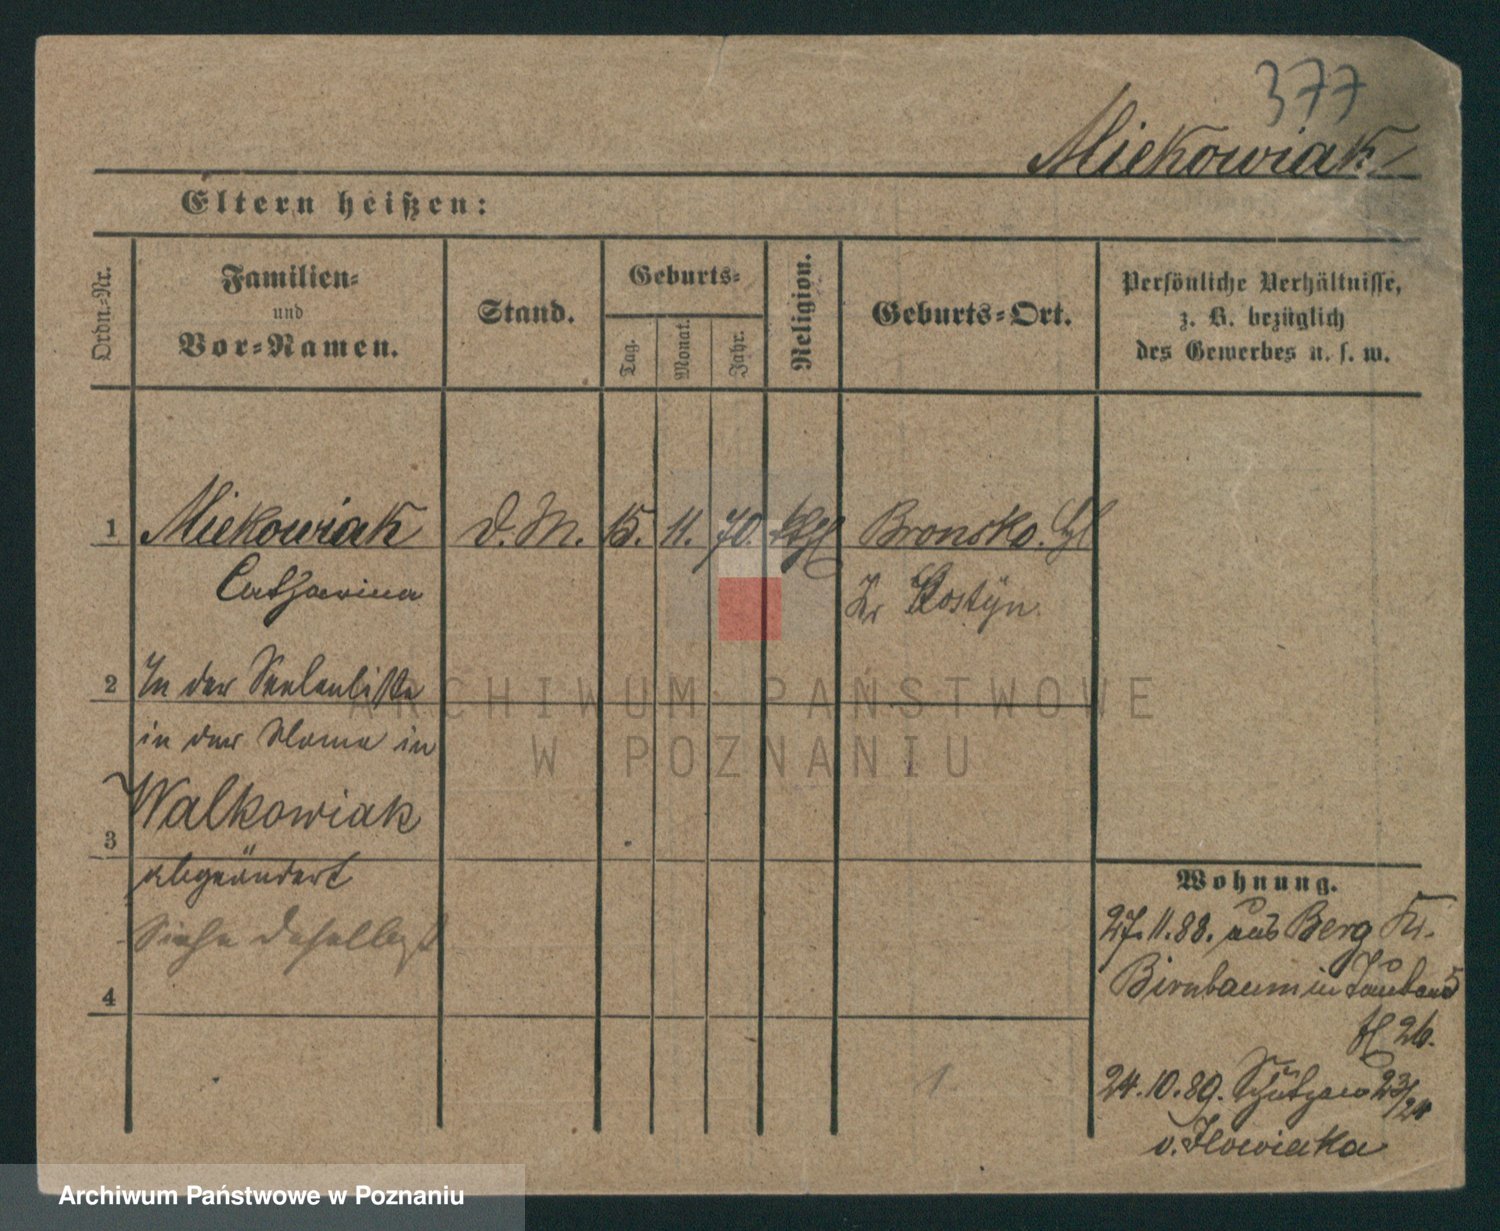 377
Miekowiak
Eltern heißen:
Ordn.-Nr.
Familien-
und
Vor-Namen.
Stand.
Geburts-
Tag.
Monat.
Jahr.
Religion.
Geburts-Ort.
Persönliche Verhältnisse,
z. B. bezüglich
des Gewerbes u. s. w.
1 Miekowiak d. M. 15. 11. 70. kthl Bronsko. Hl
Catharina
Kr Kostÿn
2 In der Seelenliste
in der Name in
3 Walkowiak
abgeändert
Siehe daselbst
4
Wohnung.
27.11.88. aus Berg Kr.
Birnbaum in Tauben
26.
24.10.89. Schützen 23/24
v. Ilowiecka
1
ARCHIWUM PAŃSTWOWE
W POZNANIU
Archiwum Państwowe w Poznaniu